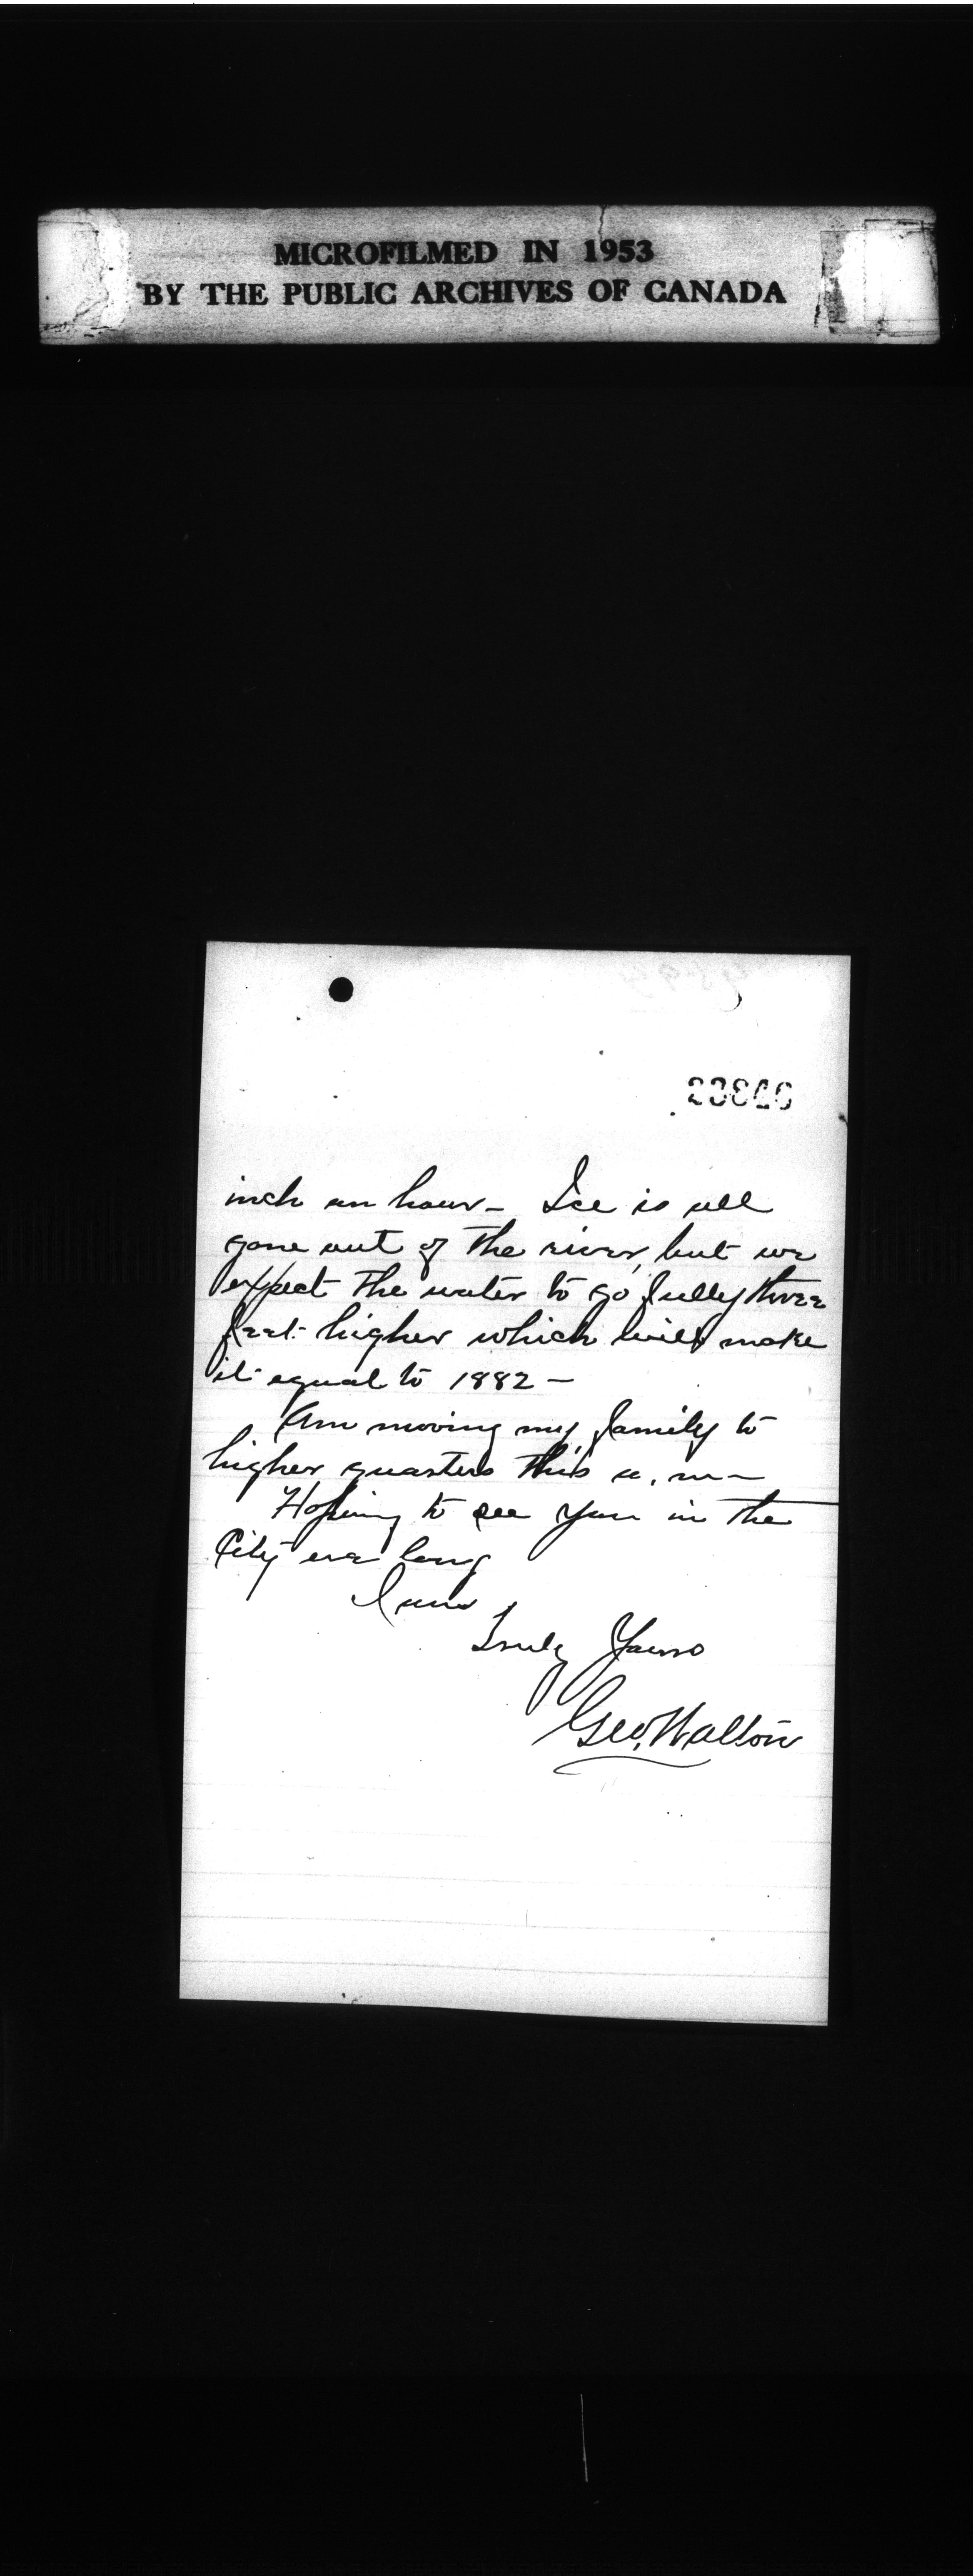 MICROFILMED IN 1953
BY THE PUBLIC ARCHIVES OF CANADA
inch an hour – Ice is all
gone out of the river, but we
expect the water to go fully three
feet higher which will make
it equal to 1882 –
Am moving my family to
higher quarters this a.m –
Hoping to see you in the
City ere long
I am
Truly Yours
Geo. Walton